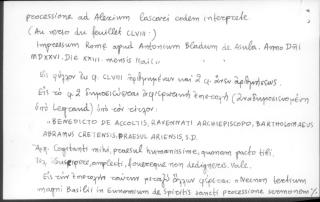 processione ad Alexium Lascarei eodem interprete
(Au verso du feuillet CLVIII:)
Impressum Romę apud Antonium Bladum de Asula. Anno Dñi
MDXXVI. Die XXIII mensis Maii.
Εἰς φύλλον ἀπὸ φ. CLVIII ἀριθμημένων καὶ 2 φ. ἄνευ ἀριθμήσεως.
Εἰς τὸ φ. 2 δημοσιεύεται ἀφιερωτικὴ ἐπιστολὴ (ἀναδημοσιευμένη
ὑπὸ Legrand) ὑπὸ τὸν τίτλον:
«BENEDICTO DE ACCOLTIS, RAVENNATI ARCHIEPISCOPO, BARTHOLOMAEUS
ABRAMUS CRETENSIS, PRAESUL ARIENSIS, S.D.
Ἀρχ. Cogitanti mihi, praesul humanissime, quonam pacto tibi
Τελ. suscipere, amplecti, fovereque non dedigneris. Vale.
Εἰς τὴν ἐπιστολὴν ταύτην μεταξὺ ἄλλων φέρεται: «Necnon tertium
magni Basilii in Eunomium de Spiritis sancti processione sermonem